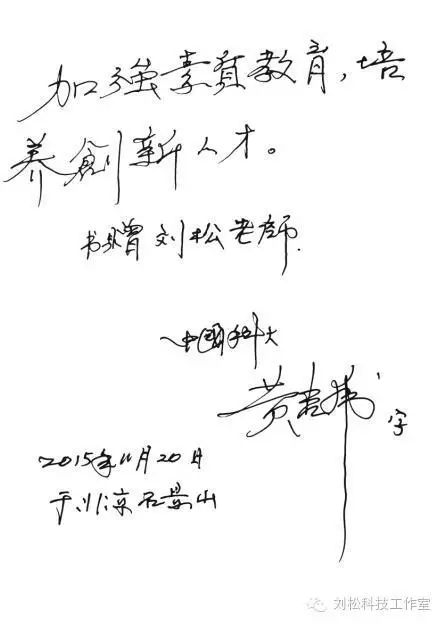 加强素质教育，培
养創新人才。
书赠刘松老師.
中国科大
黄吉虎
字
2015年11月20日
于北京石景山
刘松科技工作室